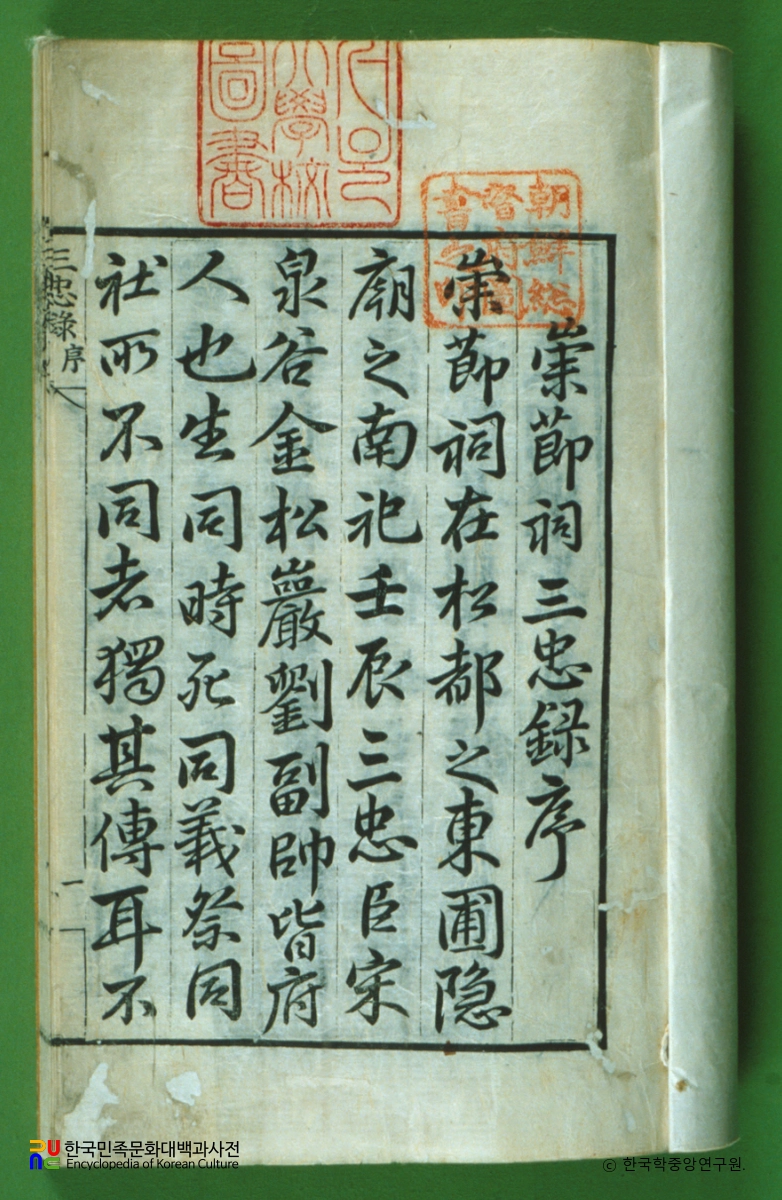 崇節祠三忠録序
崇節祠在松都之東圃隐
廟之南祀壬辰三忠臣宋
泉谷金松巖劉副帥皆府
人也生同時死同義祭同
社所不同者獨其傳耳不
三忠錄 序 一
朝鮮総
督府圖
書之印
學校
圖書
한국민족문화대백과사전
Encyclopedia of Korean Culture
ⓒ 한국학중앙연구원.